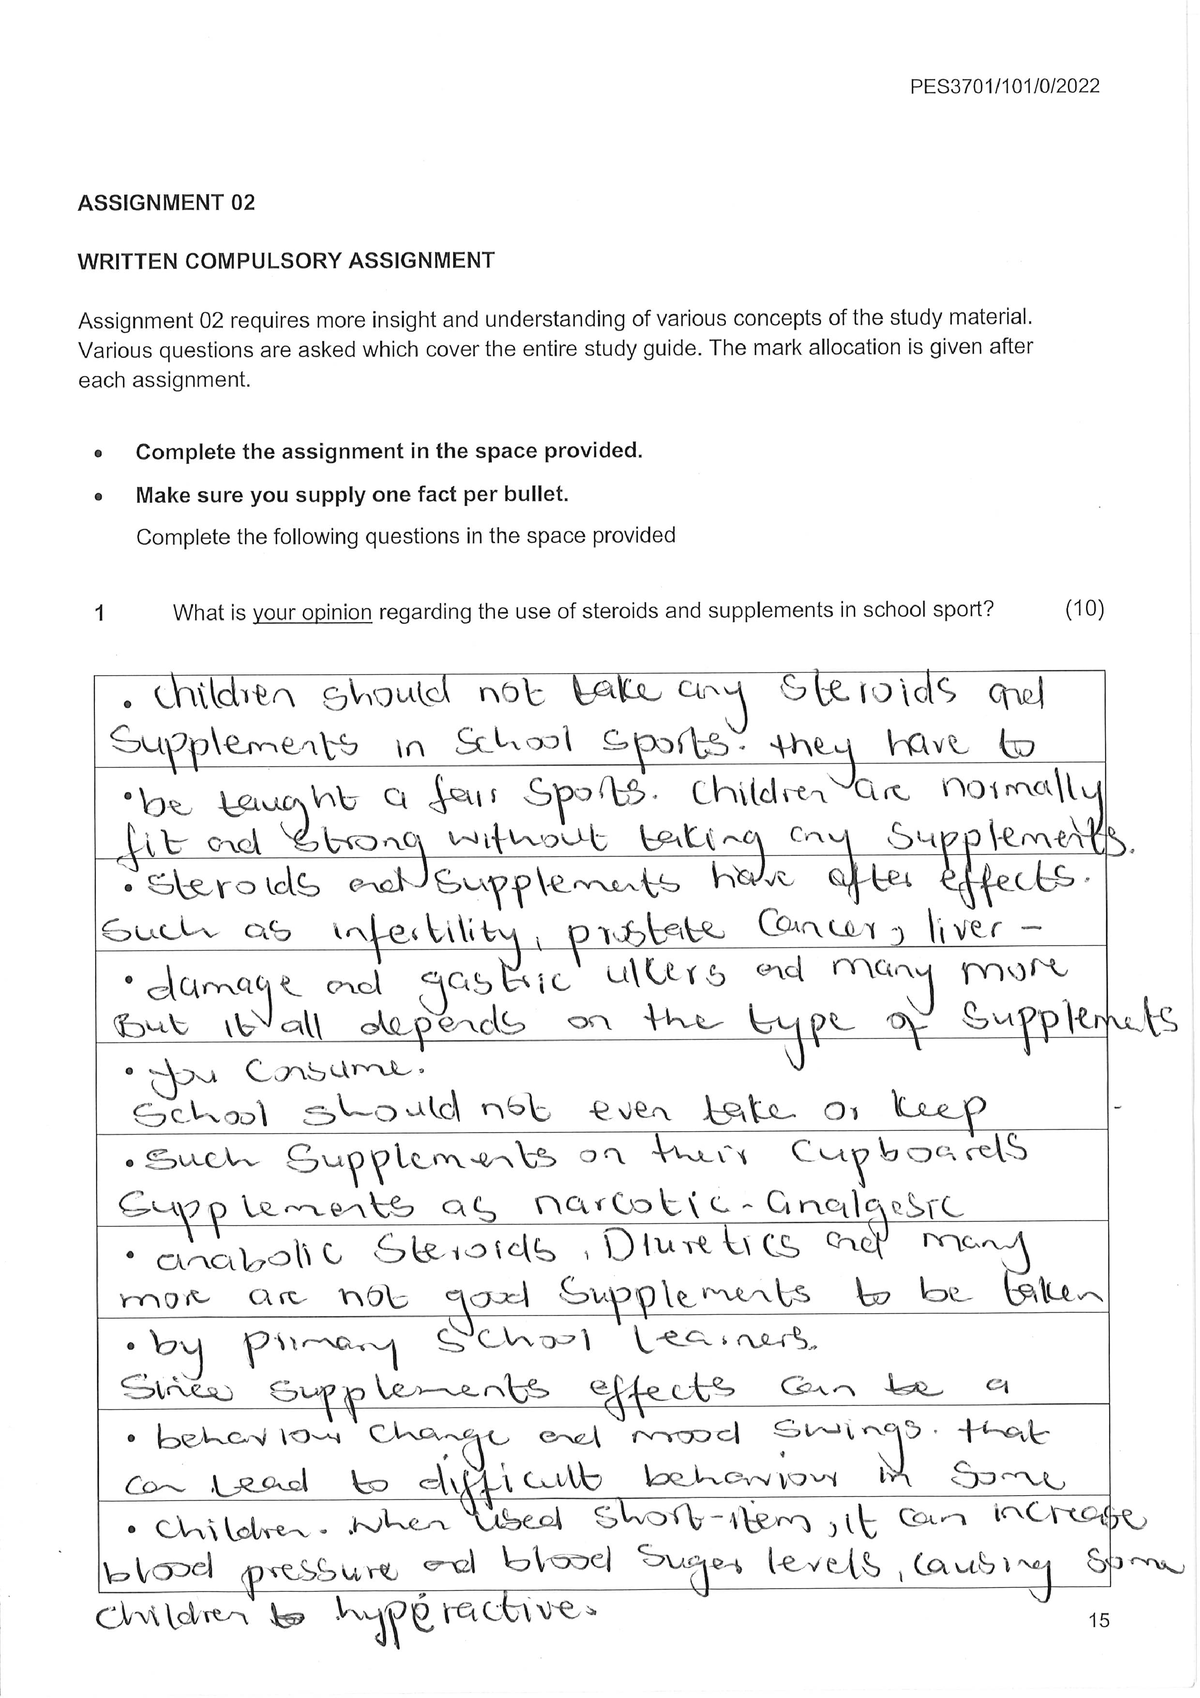 PES3701/101/0/2022
ASSIGNMENT 02
WRITTEN COMPULSORY ASSIGNMENT
Assignment 02 requires more insight and understanding of various concepts of the study material.
Various questions are asked which cover the entire study guide. The mark allocation is given after
each assignment.
• Complete the assignment in the space provided.
• Make sure you supply one fact per bullet.
Complete the following questions in the space provided
1 What is your opinion regarding the use of steroids and supplements in school sport? (10)
• children should not take any steroids and
Supplements in School sports. they have to
• be taught a fair Sports. Children are normally
fit and strong without taking any Supplements.
• Steroids and Supplements have after effects.
Such as infertility, prostate Cancer, liver -
• damage and gastric ulkers and many more
But it all depends on the type of Supplemets
• you Consume.
School should not even take or keep
• Such Supplements on their Cupboards
Supplements as narcotic-analgesic
• anabolic Steroids, Diuretics and many
more are not good Supplements to be taken
• by primary School learners.
Since Supplements effects can be a
• behaviour change and mood swings. that
can lead to difficult behaviour in some
• children. When used short-item, it can increase
blood pressure and blood Suger levels, causing some
children to hyperactive.
15